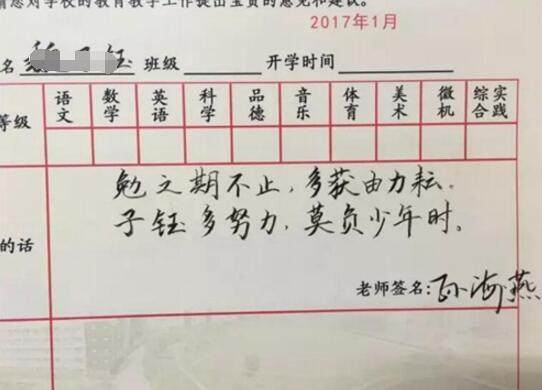 请您对学校的教育教学工作提出宝贵的意见和建议。
2017年1月
名 钰 班级 开学时间
等级 语文 数学 英语 科学 品德 音乐 体育 美术 微机 综合实践
勉之期不止，多获由力耘。
子钰多努力，莫负少年时。
的话
老师签名：孙海燕